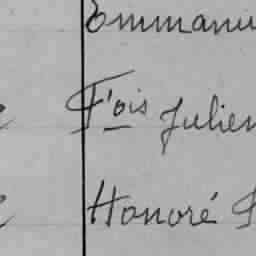 Emmanu
F'ois Julien
Honoré